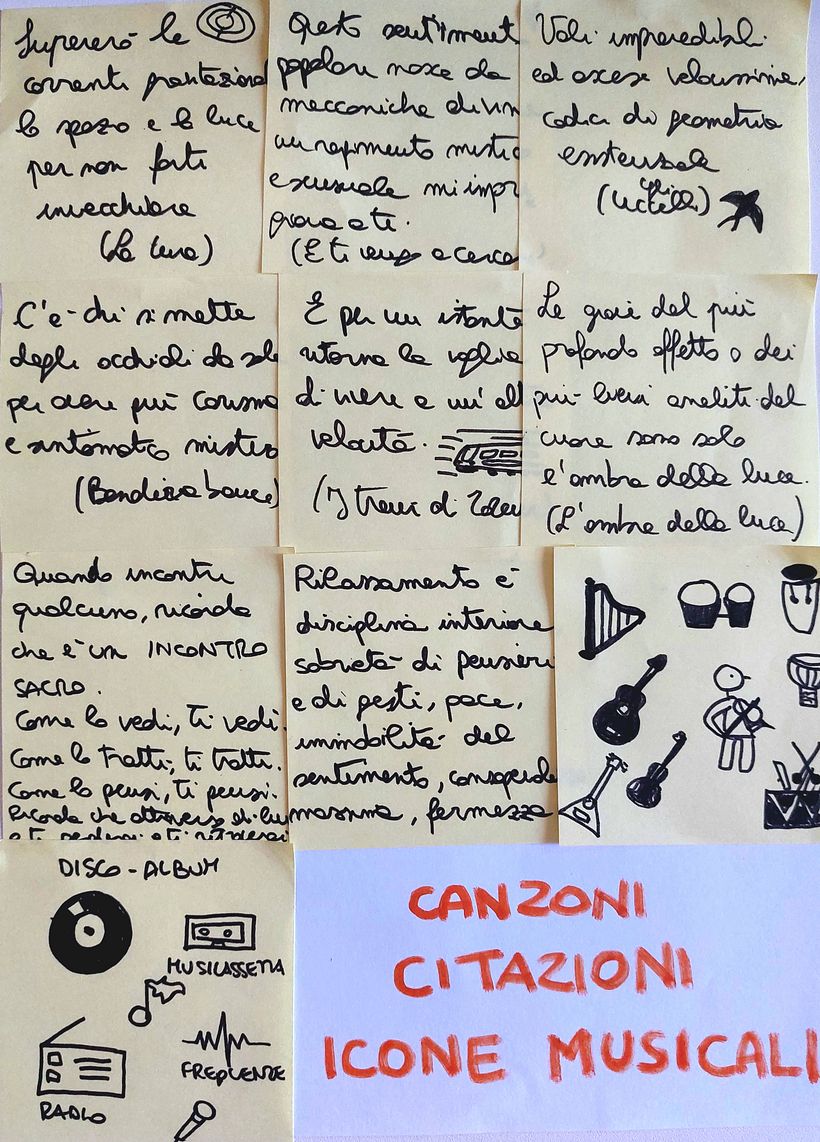 Supererò le
correnti gravitazional
lo spazio e la luce
per non farti
invecchiare
(La cura)
Questo sentiment
popolare nasce da
meccaniche divin
un rapimento mistic
e sensuale mi impr
giona a te.
(E ti vengo a cerca
Voli imprevedibili
ed ascese velocissime,
codici di geometria
esistenziale
(Gli Uccelli)
C'è chi si mette
degli occhiali da sole
per avere più carisma
e sintomatico mistero
(Bandiera bianca)
E per un istante
ritorna la voglia
di vivere a un'alt
velocità.
(I treni di Tozeu
Le gioie del più
profondo affetto o dei
più lievi aneliti del
cuore sono solo
l'ombra della luce.
(L'ombra della luce)
Quando incontri
qualcuno, ricorda
che è un INCONTRO
SACRO.
Come lo vedi, ti vedi.
Come lo tratti, ti tratti.
Come lo pensi, ti pensi.
Ricorda che attraverso di lui
Rilassamento è
disciplina interiore
sobrietà di pensieri
e di gesti, pace,
immobilità del
sentimento, consapevole
massima, fermezza
DISCO-ALBUM
MUSICASSETTA
FREQUENZE
RADIO
CANZONI
CITAZIONI
ICONE MUSICALI